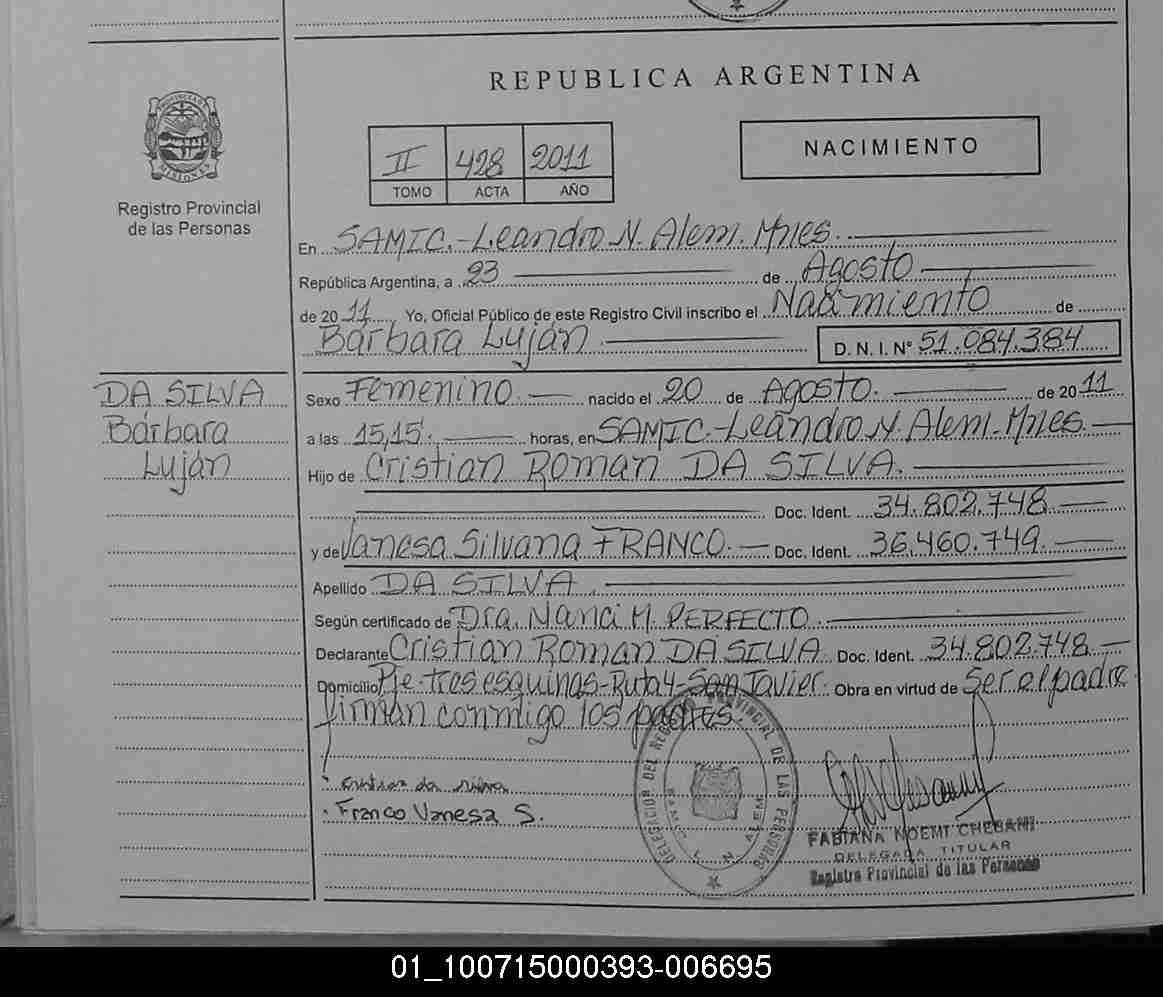 REPUBLICA ARGENTINA
II 428 2011
TOMO ACTA AÑO
NACIMIENTO
PROVINCIA DE MISIONES
Registro Provincial
de las Personas
En SAMIC.-Leandro N. Alem. Mnes.
República Argentina, a 23 de Agosto
de 2011 Yo, Oficial Público de este Registro Civil inscribo el Nacimiento de
Bárbara Luján D. N. I. Nº 51.084.384
DA SILVA
Bárbara
Luján
Sexo Femenino. nacido el 20 de Agosto. de 2011
a las 15,15. horas, en SAMIC.-Leandro N. Alem.-Mnes.
Hijo de Cristian Roman DA SILVA.
Doc. Ident. 34.802.748
y de Vanesa Silvana FRANCO. Doc. Ident. 36.460.749.
Apellido DA SILVA.
Según certificado de Dra. Nanci M. PERFECTO.
Declarante Cristian Roman DA SILVA. Doc. Ident. 34.802.748.
Domicilio Pje-tres esquinas-Ruta 4-San Javier. Obra en virtud de Ser el padre
firman conmigo los padres.
cristian da silva
Franco Vanesa S.
DELEGACION DEL REGISTRO PROVINCIAL DE LAS PERSONAS
L. N. ALEM
FABIANA NOEMI CHEBANI
DELEGADA TITULAR
Registro Provincial de las Personas
01_100715000393-006695